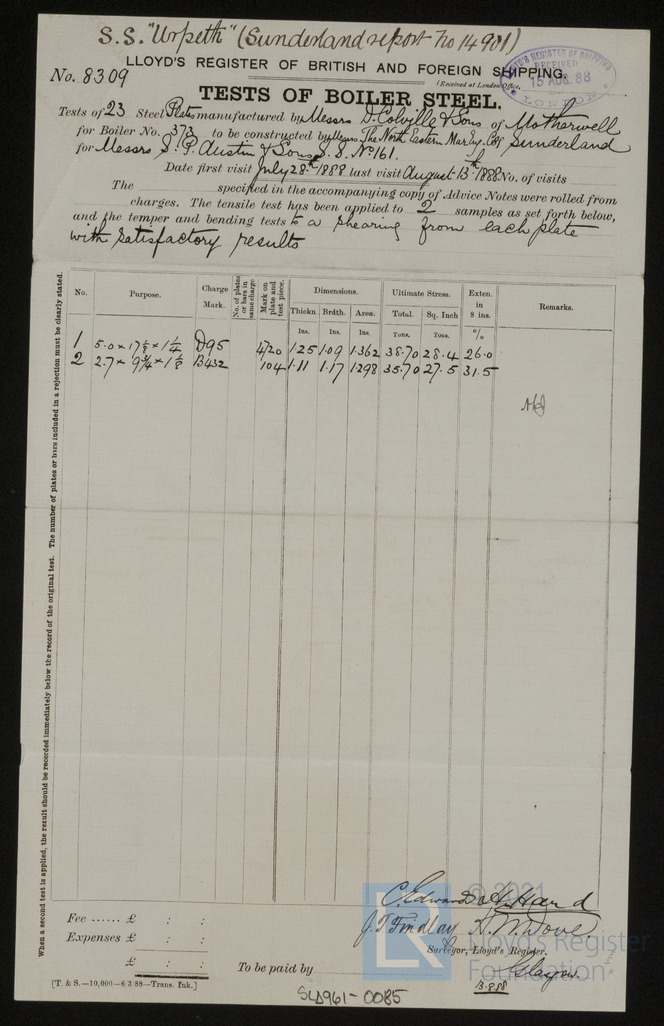 S.S. "Urpeth" (Sunderland report No 14901)
LLOYD'S REGISTER OF BRITISH AND FOREIGN SHIPPING.
No. 8309
(Received at London Office,
LLOYD'S REGISTER OF SHIPPING
RECEIVED
15 AUG. 88
LONDON
TESTS OF BOILER STEEL.
Tests of 23 Steel Plates manufactured by Messrs D. Colville & Sons of Motherwell
for Boiler No. 373 to be constructed by Messrs The North Eastern Mar Eng. Coy Sunderland
for Messrs S. P. Austin & Sons S.S. No 161.
Date first visit July 28th 1888 last visit August 13th 1888 No. of visits
The specified in the accompanying copy of Advice Notes were rolled from
charges. The tensile test has been applied to 2 samples as set forth below,
and the temper and bending tests to a shearing from each plate
with satisfactory results
No. Purpose. Charge Mark. No. of plates or bars in same charge Mark on plate and test piece. Dimensions. Ultimate Stress. Exten. in 8 ins. Remarks.
Thickn. Brdth. Area. Total. Sq. Inch
Ins. Ins. Ins. Tons. Tons. %
1 5.0 × 17⅛ × 1¼ D95 4/20 1.25 1.09 1.362 38.70 28.4 26.0
2 2.7 × 9¾ × 1⅛ B432 104 1.11 1.17 1.298 35.70 27.5 31.5
When a second test is applied, the result should be recorded immediately below the record of the original test. The number of plates or bars included in a rejection must be clearly stated.
C. Edwards
J. T. Findlay H. M. Dove
Fee ...... £ : :
Expenses £ : :
£ : :
Surveyor, Lloyd's Register.
To be paid by
Glasgow
13.8.88
[T. & S.—10,000—6/3/88—Trans. Ink.]
SLD961-0085
© 2021
Lloyd's Register
Foundation